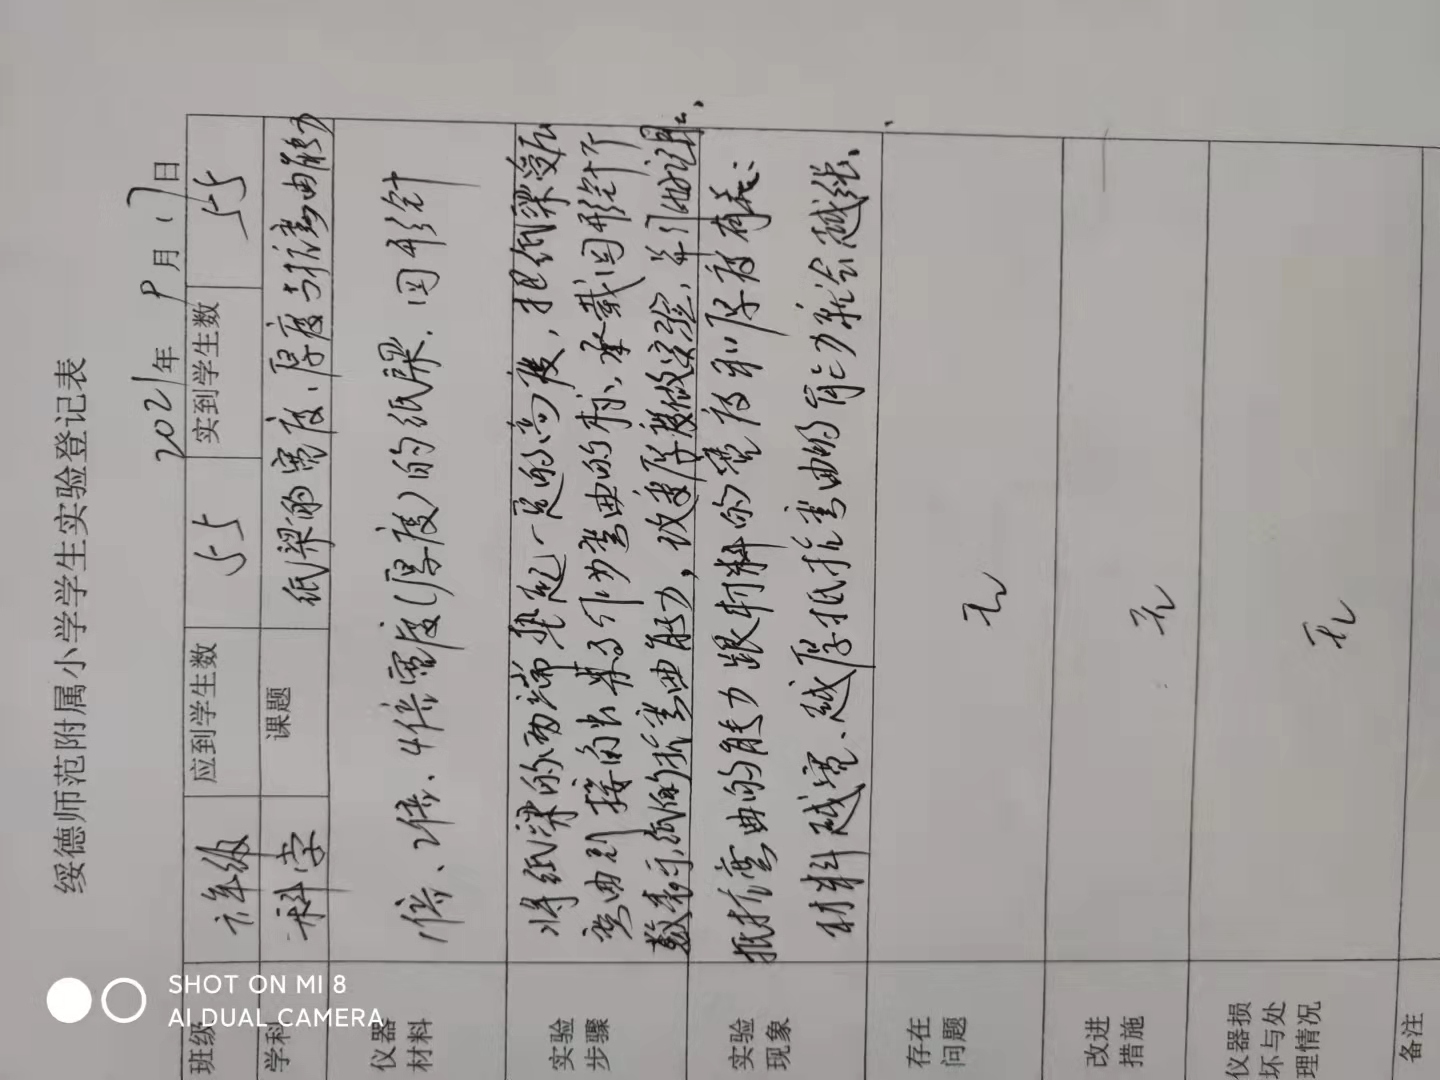 绥德师范附属小学学生实验登记表
2021年 9月 17日
班级 六年级 应到学生数 55 实到学生数 55
学科 科学 课题 纸梁的宽度、厚度与抗弯曲能力
仪器材料 1倍、2倍、4倍宽度(厚度)的纸梁、回形针
实验步骤 将纸梁的两端垫起一定的高度,把纸梁受压
弯曲到 接触 作为弯曲的 承载回形针个
数表示纸的抗弯曲能力, 改变厚度做实验,
实验现象 抵抗弯曲的能力跟材料的宽度和厚度有关:
材料越宽、越厚抵抗弯曲的能力就会越强、
存在问题 无
改进措施 无
仪器损坏与处理情况 无
备注
SHOT ON MI 8
AI DUAL CAMERA